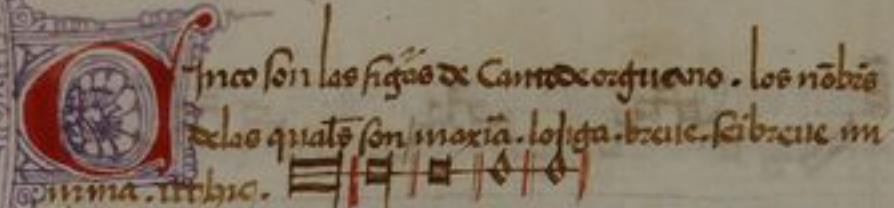 Cinco son las figãs de Canto de orguano. los nõbrs
delas quals̃ son maxiã. longa. breue. semibreue mi
nima. ut hic.